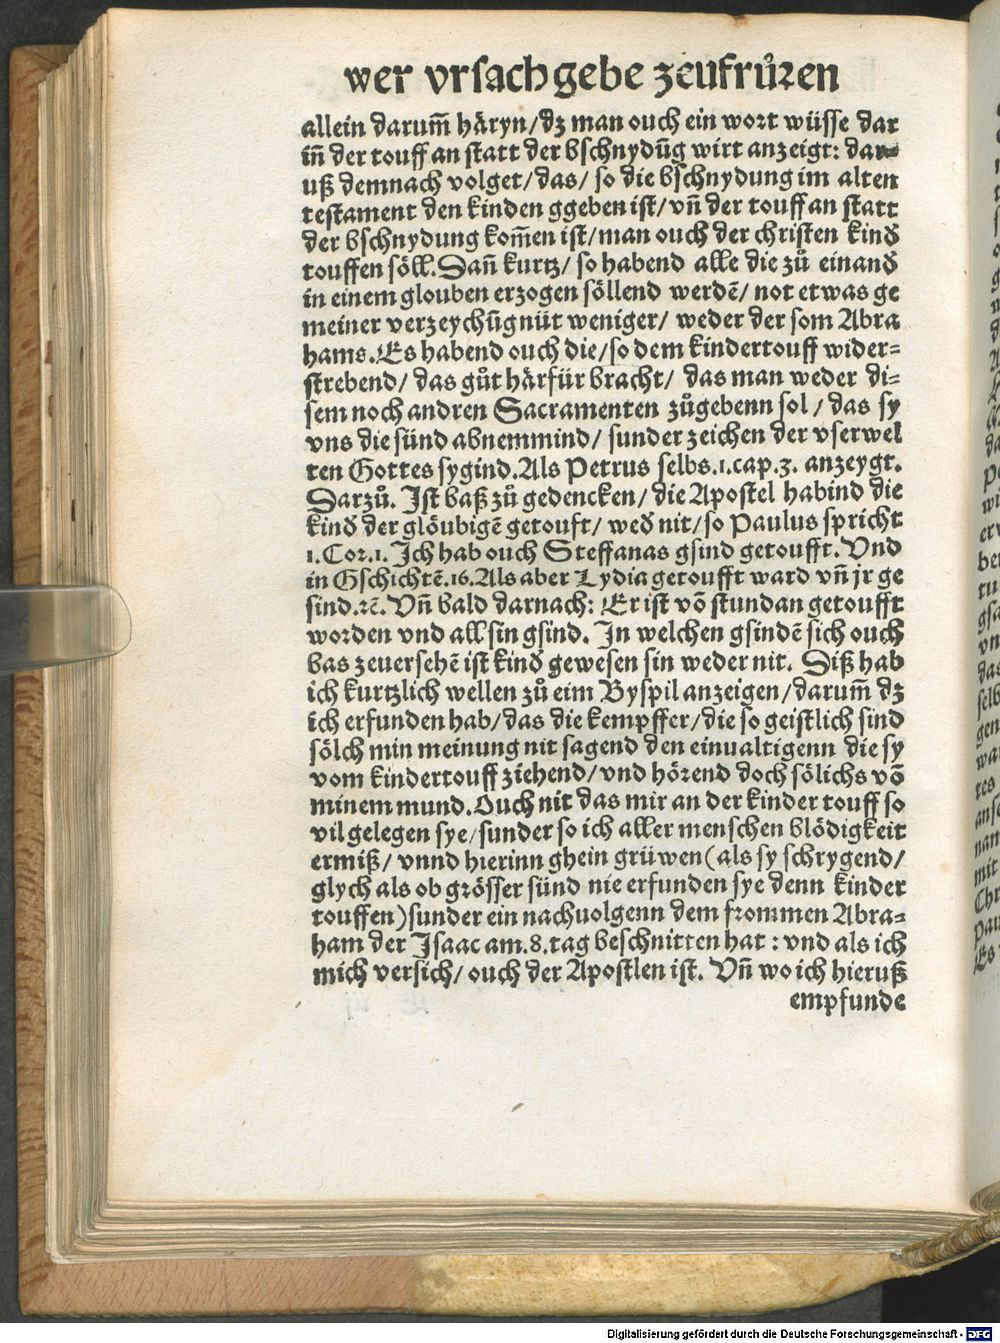 wer vrsach gebe zeufrůren
allein darum̃ häryn/dz man ouch ein wort wüsse dar
iñ der touff an statt der bschnydũg wirt anzeigt: dar-
uß demnach volget/das/ so die bschnydung im alten
testament den kinden ggeben ist/vñ der touff an statt
der bschnydung kom̃en ist/man ouch der christen kind
touffen söll. Dañ kurtz/ so habend alle die zů einand
in einem glouben erzogen söllend werdẽ/ not etwas ge
meiner verzeychũg nüt weniger/ weder der som Abra
hams. Es habend ouch die/so dem kindertouff wider-
strebend/ das gůt härfür bracht/ das man weder di-
sem noch andren Sacramenten zůgebenn sol/ das sy
vns die sünd abnemmind/ sunder zeichen der vserwel
ten Gottes sygind. Als Petrus selbs.1.cap.3. anzeygt.
Darzů. Ist baß zů gedencken/die Apostel habind die
kind der glöubigẽ getouft/ wed nit/so Paulus spricht
1. Cor.1. Ich hab ouch Steffanas gsind getoufft. Vnd
in Gschichtẽ.16. Als aber Lydia getoufft ward vñ jr ge
sind.⁊c̃. Vñ bald darnach: Er ist võ stundan getoufft
worden vnd all sin gsind. In welchen gsindẽ sich ouch
bas zeuersehẽ ist kind gewesen sin weder nit. Diß hab
ich kurtzlich wellen zů eim Byspil anzeigen/darum̃ dz
ich erfunden hab/das die kempffer/die so geistlich sind
sölch min meinung nit sagend den einualtigenn die sy
vom kindertouff ziehend/vnd hörend doch sölichs võ
minem mund. Ouch nit das mir an der kinder touff so
vil gelegen sye/sunder so ich aller menschen blödigkeit
ermiß/ vnnd hierinn ghein grüwen (als sy schrygend/
glych als ob grösser sünd nie erfunden sye denn kinder
touffen) sunder ein nachuolgenn dem frommen Abra-
ham der Isaac am.8.tag beschnitten hat: vnd als ich
mich versich/ ouch der Apostlen ist. Vñ wo ich hieruß
empfunde
Digitalisierung gefördert durch die Deutsche Forschungsgemeinschaft - DFG